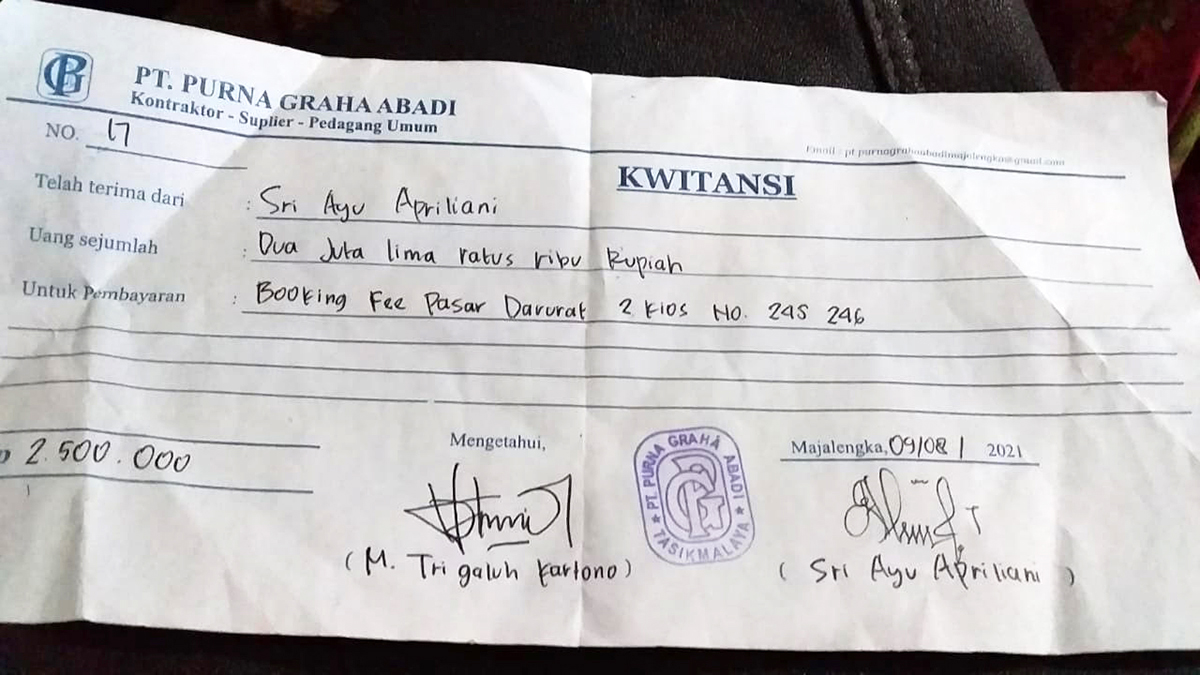 PT. PURNA GRAHA ABADI
Kontraktor - Suplier - Pedagang Umum
Email : pt.purnagrahaabadimajalengka@gmail.com
NO. 17
KWITANSI
Telah terima dari : Sri Ayu Apriliani
Uang sejumlah : Dua Juta lima ratus ribu Rupiah
Untuk Pembayaran : Booking Fee Pasar Darurat 2 Kios No. 245 246
2.500.000
Mengetahui,
Majalengka, 09/08/ 2021
PT. PURNA GRAHA ABADI
TASIKMALAYA
(M. Tri galuh Kartono)
(Sri Ayu Apriliani)